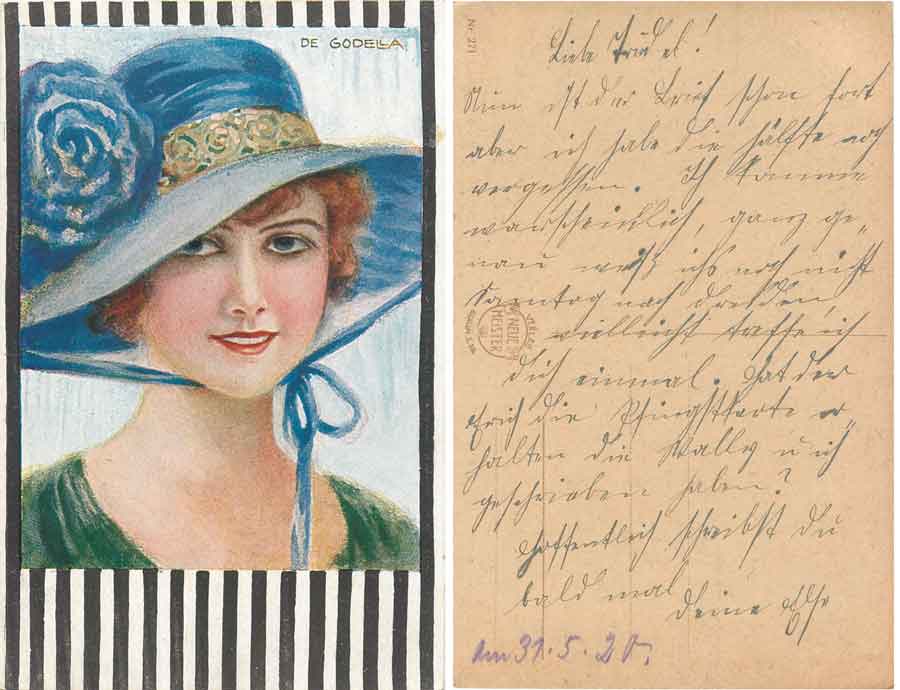 DE GODELLA
Nr. 271
Liebe Trudel!
Nun ist der Brief schon fort
aber ich habe die hälfte noch
vergessen. Ich komme
warscheinlich, ganz ge-
nau weiß ichs noch nicht
Sonntag nach Dresden
vielleicht treffe ich
dich einmal. Hat der
Erich die Pfingstkarte er-
halten die Wally u ich
geschrieben haben?
Hoffentlich schreibst du
bald mal
Deine Else
NEUE
MEISTER
Am 31.5.20.